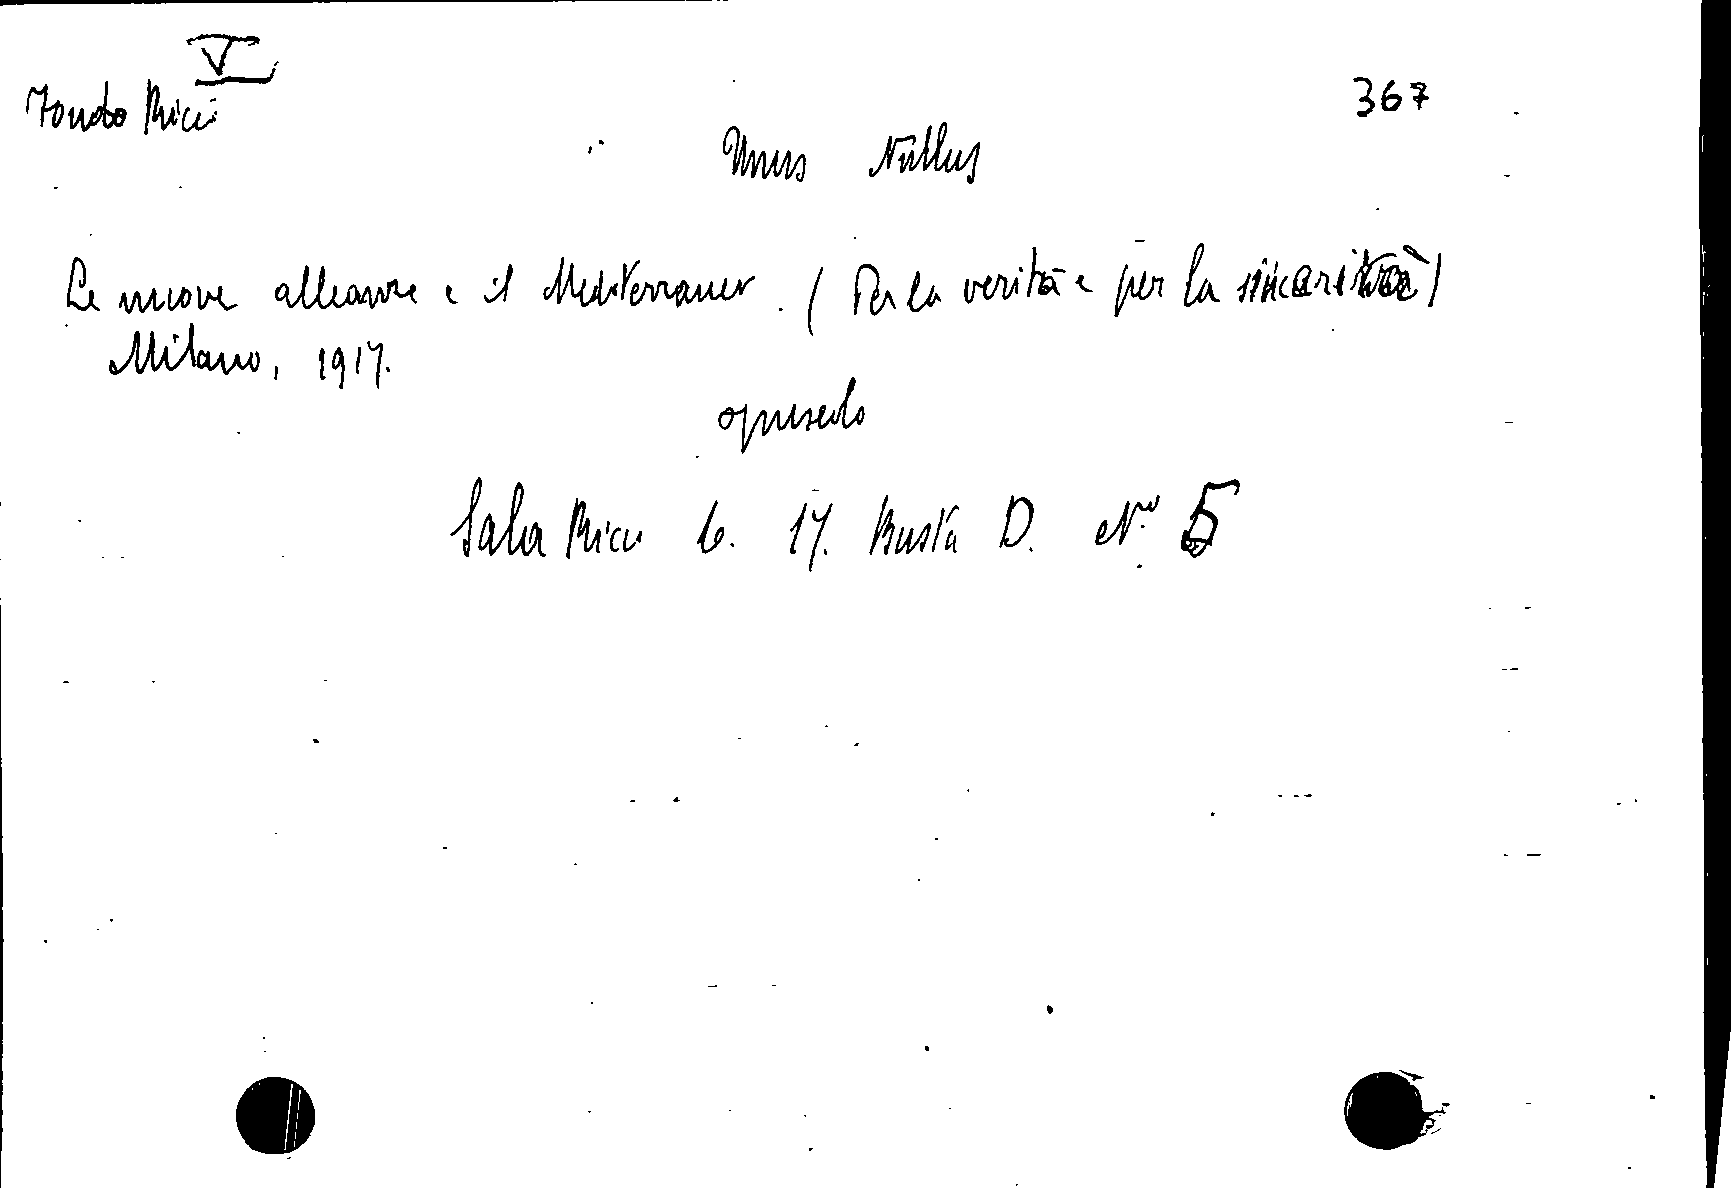 V
Fondo Ricci
367
Unus Nullus
Le nuove alleanze e il Mediterraneo. (Per la verità e per la sincerità)
Milano, 1917.
opuscolo
Sala Ricci 6. 17. Busta D. No 5